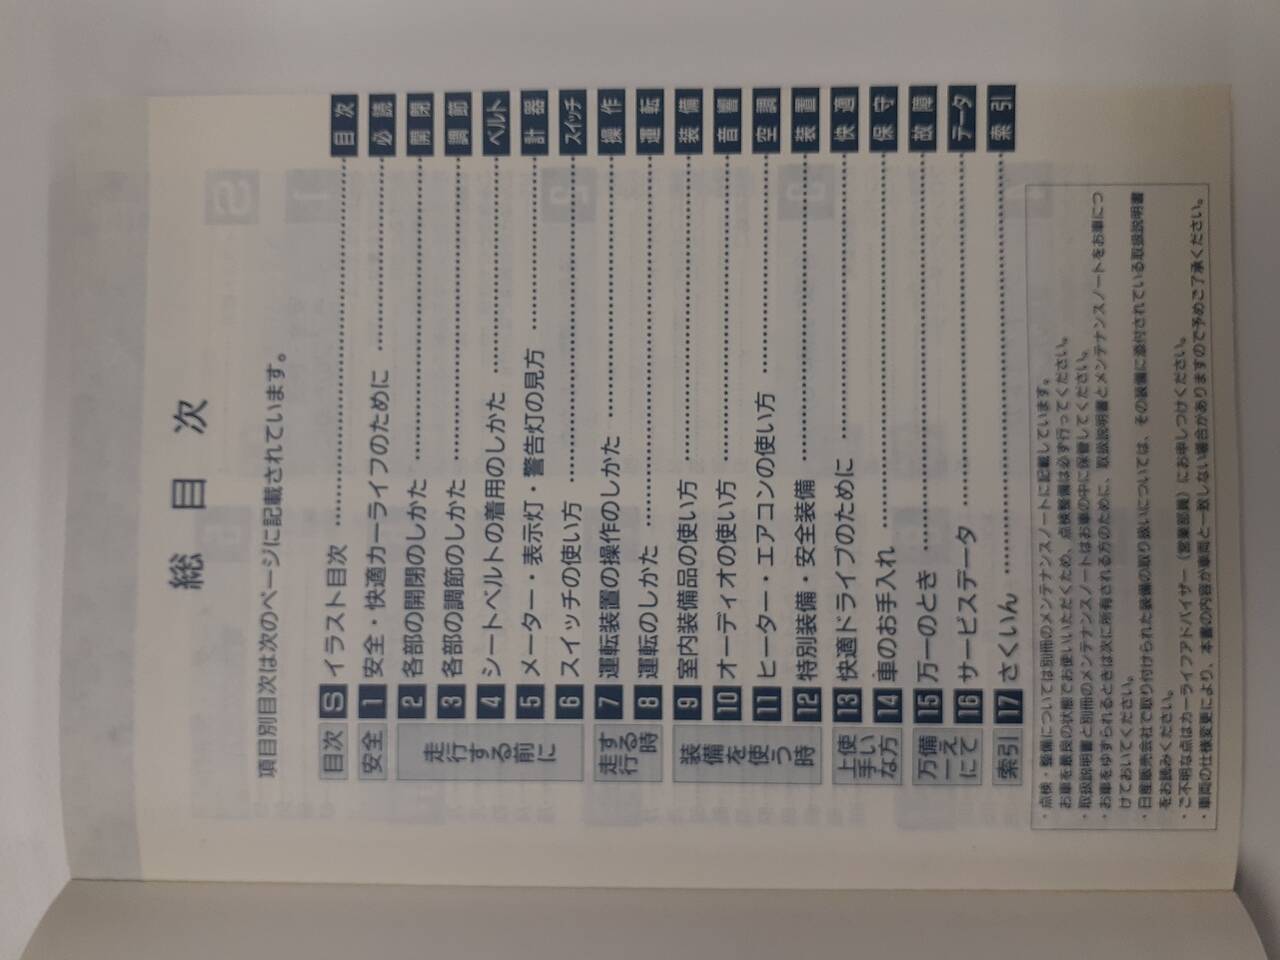 総目次
項目別目次は次のページに記載されています。
目次 S イラスト目次 目次
安全 1 安全・快適カーライフのために 必読
走行する前に
2 各部の開閉のしかた 開閉
3 各部の調節のしかた 調節
4 シートベルトの着用のしかた ベルト
5 メーター・表示灯・警告灯の見方 計器
6 スイッチの使い方 スイッチ
走行する時
7 運転装置の操作のしかた 操作
8 運転のしかた 運転
装備を使う時
9 室内装備品の使い方 装備
10 オーディオの使い方 音響
11 ヒーター・エアコンの使い方 空調
12 特別装備・安全装備 装置
上手な使い方
13 快適ドライブのために 快適
14 車のお手入れ 保守
万一に備えて
15 万一のとき 故障
16 サービスデータ データ
索引 17 さくいん 索引
・点検・整備については別冊のメンテナンスノートに記載しています。
お車を最良の状態でお使いいただくため、点検整備は必ず行ってください。
・取扱説明書と別冊のメンテナンスノートはお車の中に保管してください。
・お車をゆずられるときは次に所有される方のために、取扱説明書とメンテナンスノートをお車につ
けておいてください。
・日産販売会社で取り付けられた装備の取り扱いについては、その装備に添付されている取扱説明書
をお読みください。
・ご不明な点はカーライフアドバイザー（営業部員）にお申しつけください。
・車両の仕様変更により、本書の内容が車両と一致しない場合がありますので予めご了承ください。